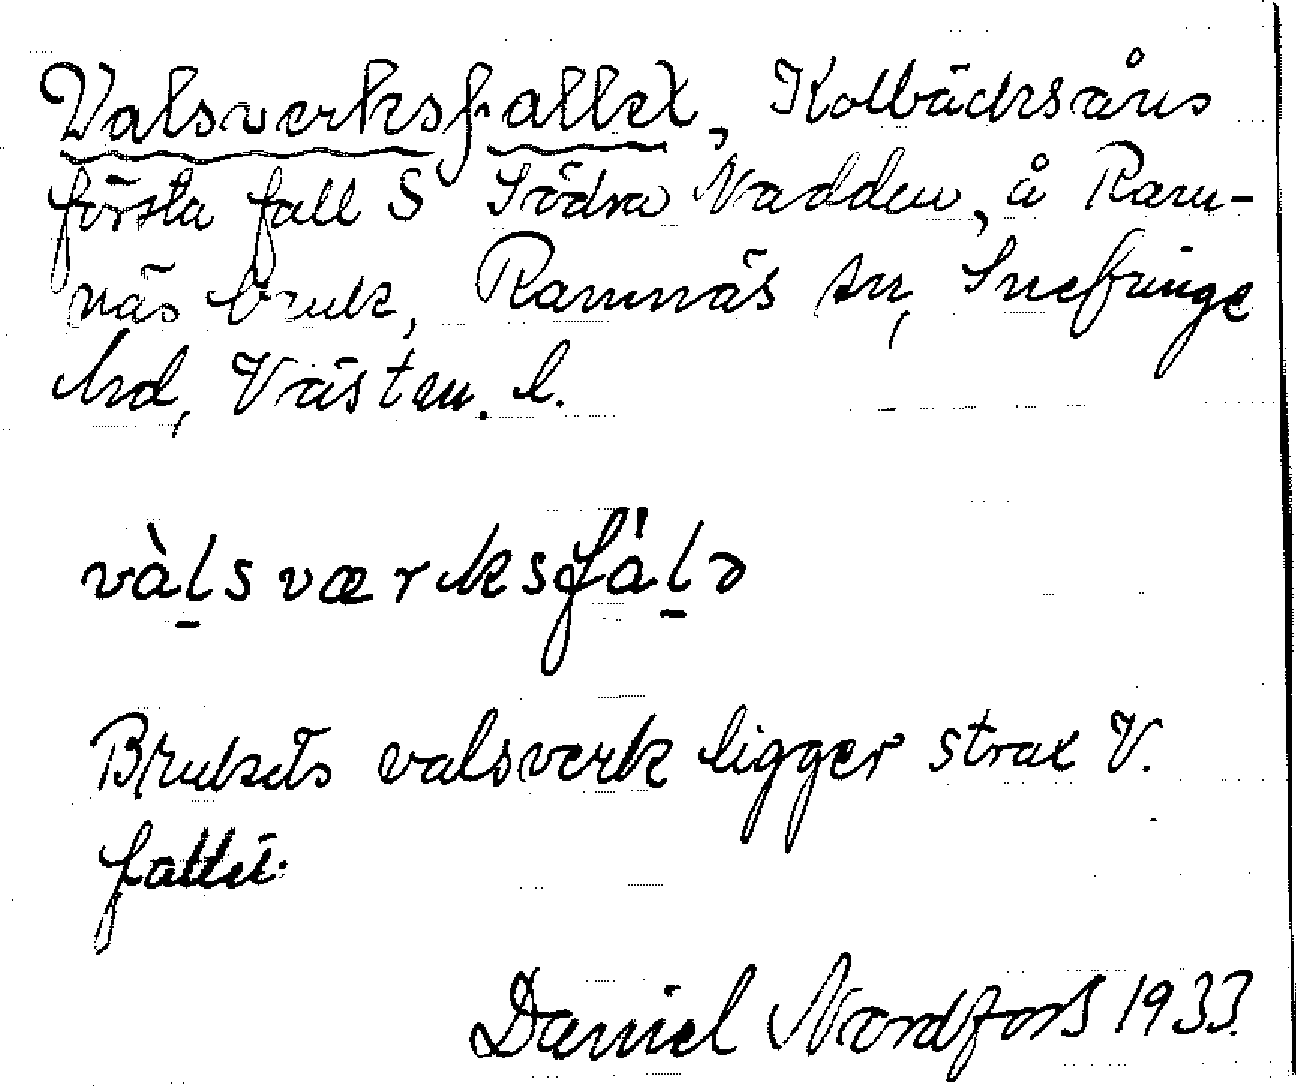 Valsverksfallet, Kolbäcksåns
första fall S Södra Nadden, å Ram-
näs bruk, Ramnäs sn, Snefringe
hrd, Västm. l.
vàl̠sværksfál̠ə
Brukets valsverk ligger strax V.
fallet.
Daniel Nordfors 1933.